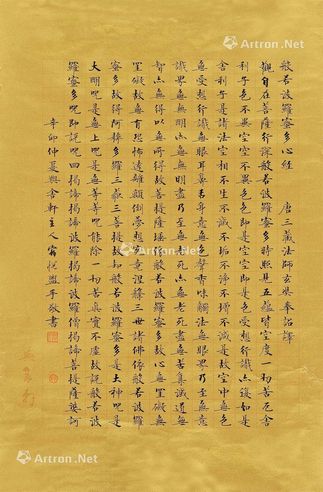 般若波羅蜜多心經 唐三藏法師玄奘奉詔譯
觀自在菩薩行深般若波羅蜜多時照見五蘊皆空度一切苦厄舍
利子色不異空空不異色色即是空空即是色受想行識亦復如是
舍利子是諸法空相不生不滅不垢不淨不增不減是故空中無色
無受想行識無眼耳鼻舌身意無色聲香味觸法無眼界乃至無意
識界無無明亦無無明盡乃至無老死亦無老死盡無苦集滅道無
智亦無得以無所得故菩提薩埵依般若波羅蜜多故心無罣礙無
罣礙故無有恐怖遠離顛倒夢想究竟涅槃三世諸佛依般若波羅
蜜多故得阿耨多羅三藐三菩提故知般若波羅蜜多是大神咒是
大明咒是無上咒是無等等咒能除一切苦真實不虛故說般若波
羅蜜多咒即說咒曰揭諦揭諦波羅揭諦波羅僧揭諦菩提薩婆訶
辛卯仲夏 軒主 悅盥手敬書
Artron.Net
Artron.Net
Artron.Net
Artron.Net